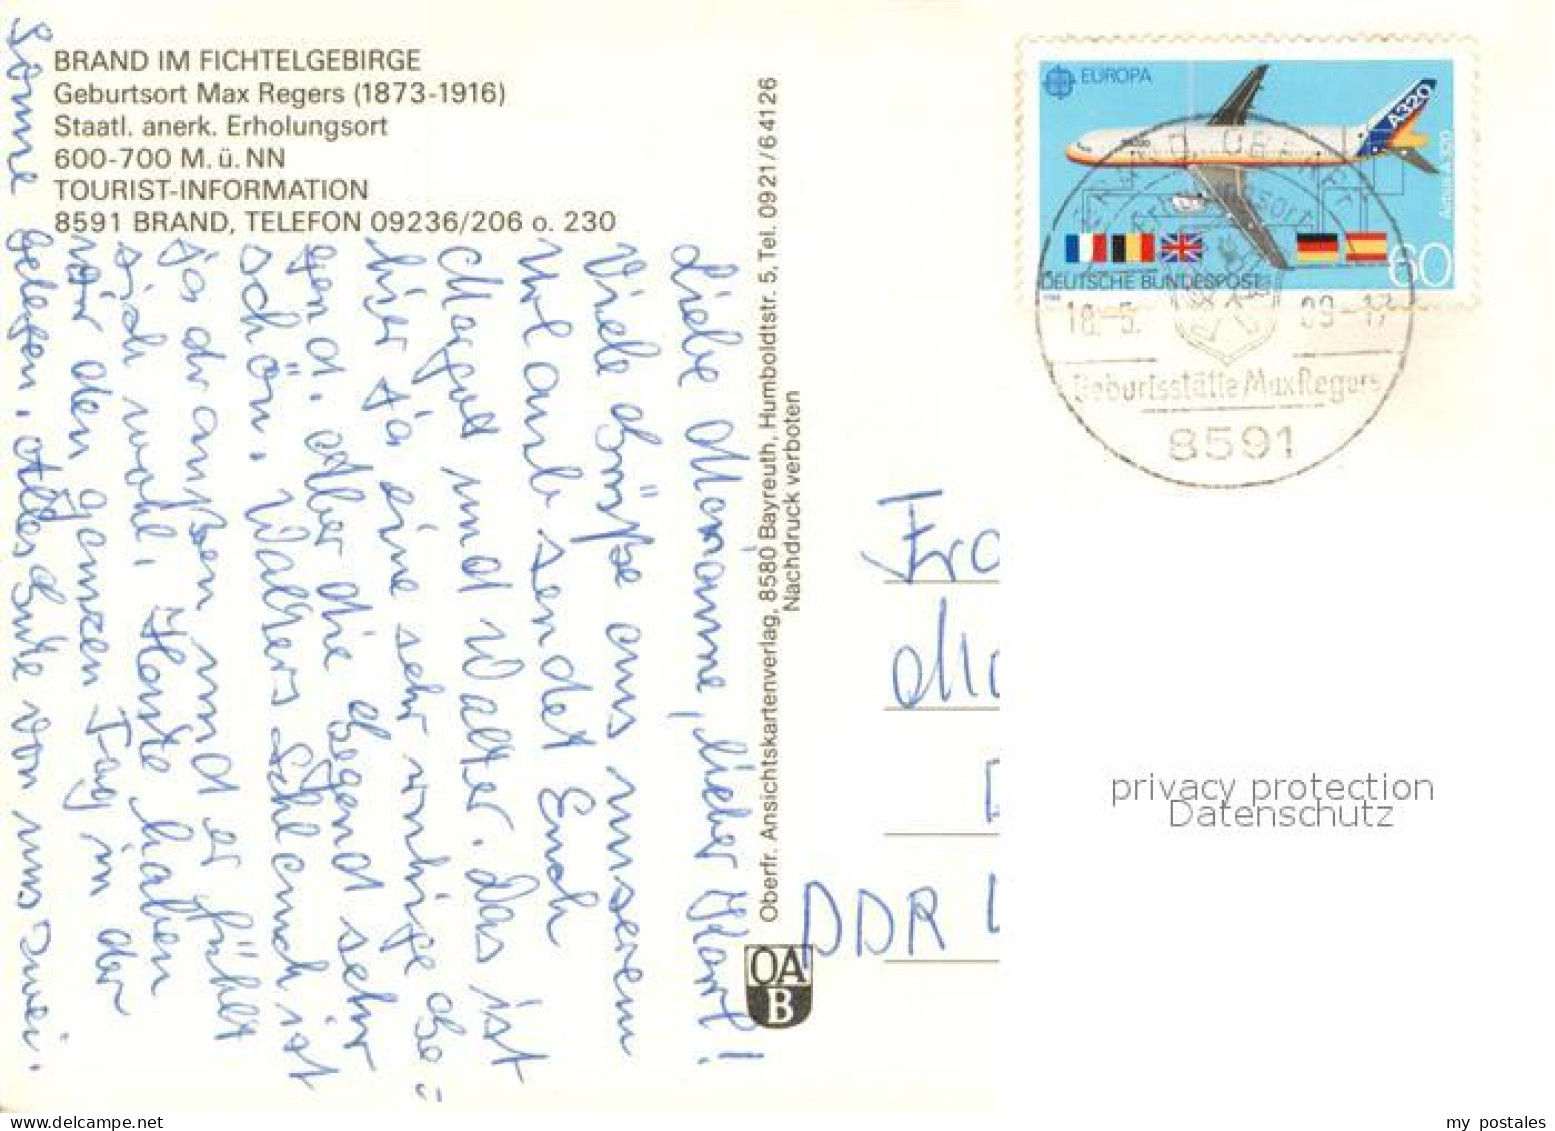 BRAND IM FICHTELGEBIRGE
Geburtsort Max Regers (1873-1916)
Staatl. anerk. Erholungsort
600-700 M. ü. NN
TOURIST-INFORMATION
8591 BRAND, TELEFON 09236/206 o. 230
Liebe Marianne, lieber Karl!
Viele Grüße aus unserem
Urlaub sendet Euch
Margot und Walter. Das ist
hier ja eine sehr ruhige Ge=
gend. Aber die Gegend sehr
schön. Walters Schlauch ist
ja draußen und er fühlt
sich wohl. Heute haben
wir den ganzen Tag in der
Sonne gelegen. Alles Gute von uns zwei.
Oberfr. Ansichtskartenverlag, 8580 Bayreuth, Humboldtstr. 5, Tel. 0921/64126
Nachdruck verboten
OA
B
EUROPA
A320
Airbus A320
DEUTSCHE BUNDESPOST
60
1988
18.-5.
09-17
Geburtsstätte Max Regers
8591
DDR
privacy protection
Datenschutz
my postales